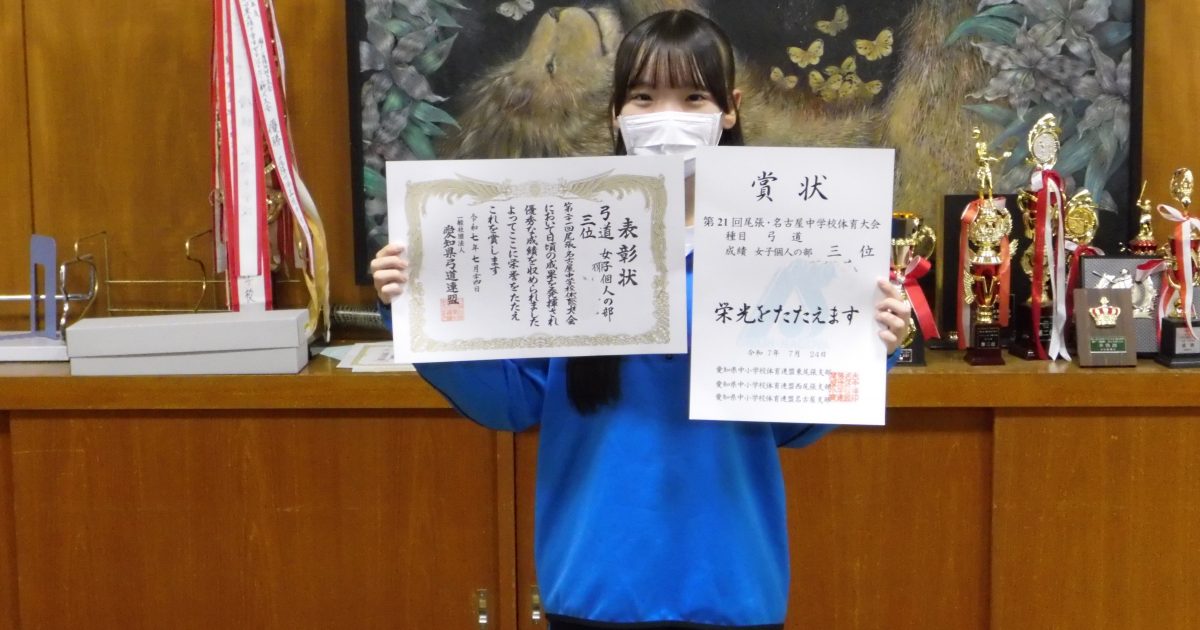 表彰状
弓道 女子個人の部
三位
第二十一回尾張・名古屋中学校体育大会
において日頃の成果を発揮され
優秀な成績を収められました
よってここに栄誉をたたえ
これを賞します
令和七年七月二十四日
一般社団法人
愛知県弓道連盟
賞状
第21回尾張・名古屋中学校体育大会
種目 弓道
成績 女子個人の部 三位
栄光をたたえます
令和 7年 7月 24日
愛知県中小学校体育連盟東尾張支部
愛知県中小学校体育連盟西尾張支部
愛知県中小学校体育連盟名古屋支部
優勝